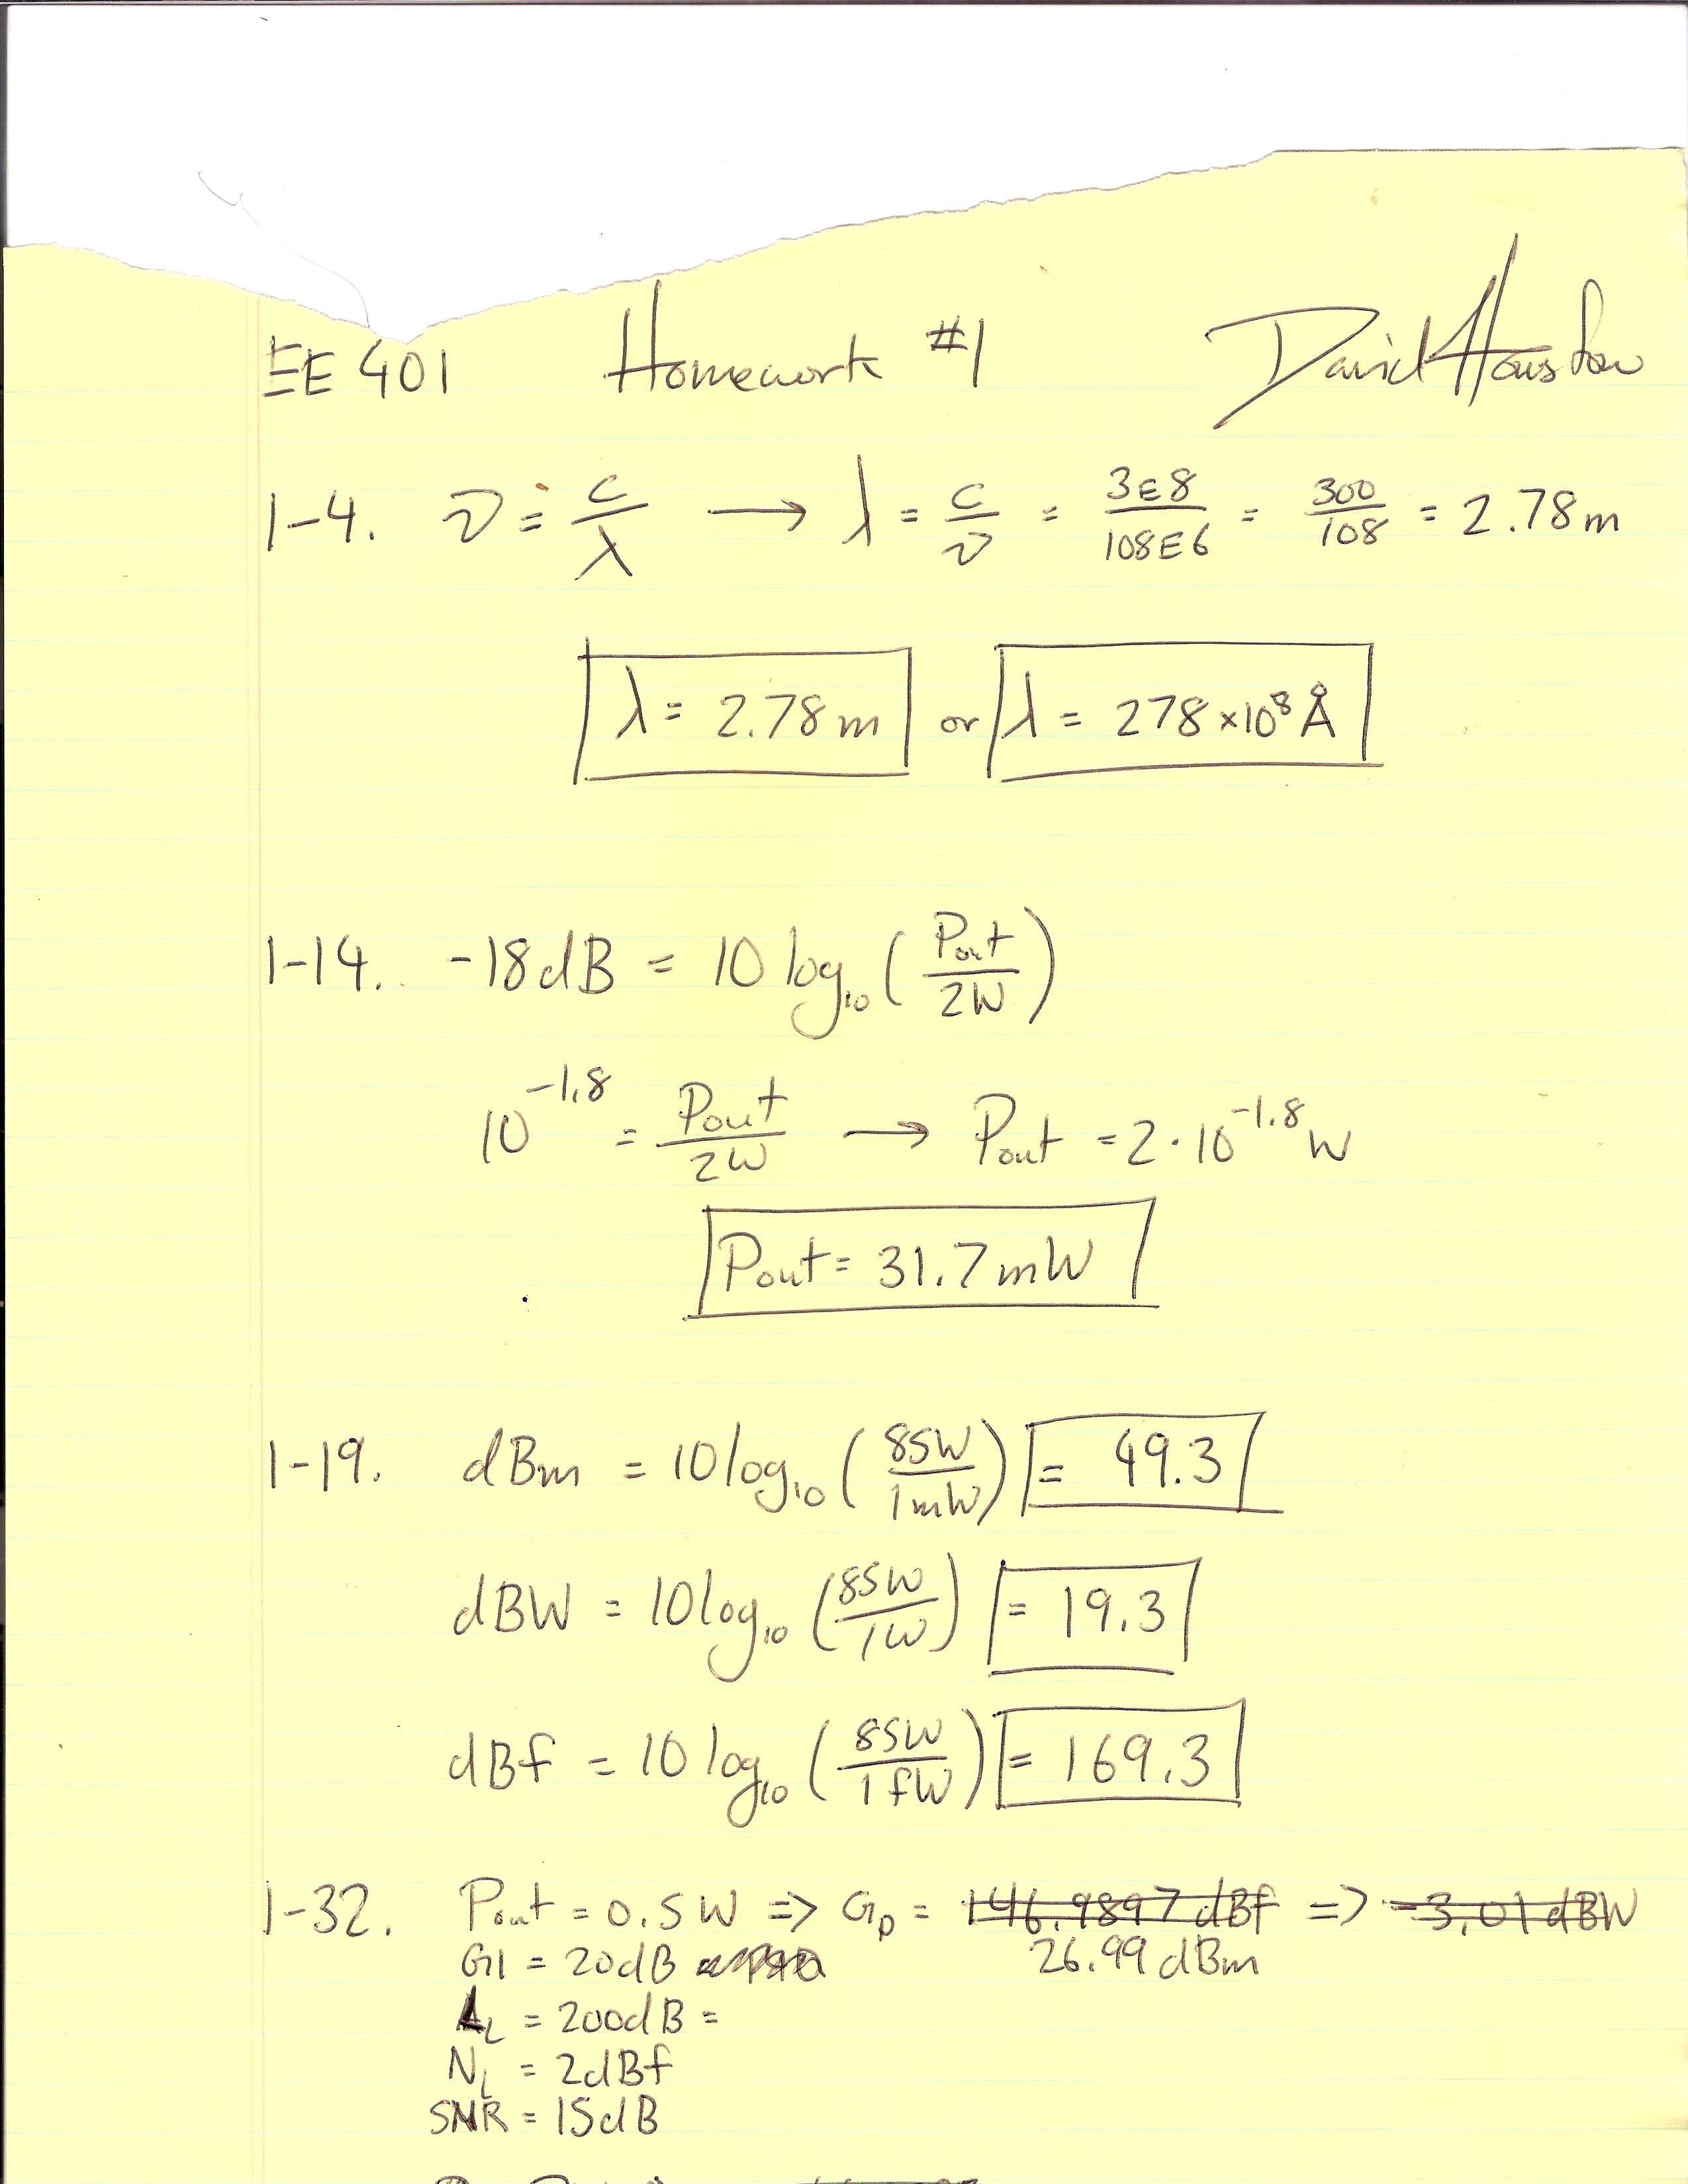 EE 401 Homework #1 David Houston
1-4. ν = c/λ → λ = c/ν = 3E8/108E6 = 300/108 = 2.78m
λ = 2.78m or λ = 278×10⁸Å
1-14. -18dB = 10 log₁₀ (Pout/2W)
10^-1.8 = Pout/2W → Pout = 2·10^-1.8 W
Pout = 31.7mW
1-19. dBm = 10 log₁₀ (85W/1mW) = 49.3
dBW = 10 log₁₀ (85W/1W) = 19.3
dBf = 10 log₁₀ (85W/1fW) = 169.3
1-32. Pout = 0.5W => Gp = 146.9897 dBf => -3.01 dBW
G1 = 20dB 26.99 dBm
L = 200dB =
N_L = 2dBf
SNR = 15dB